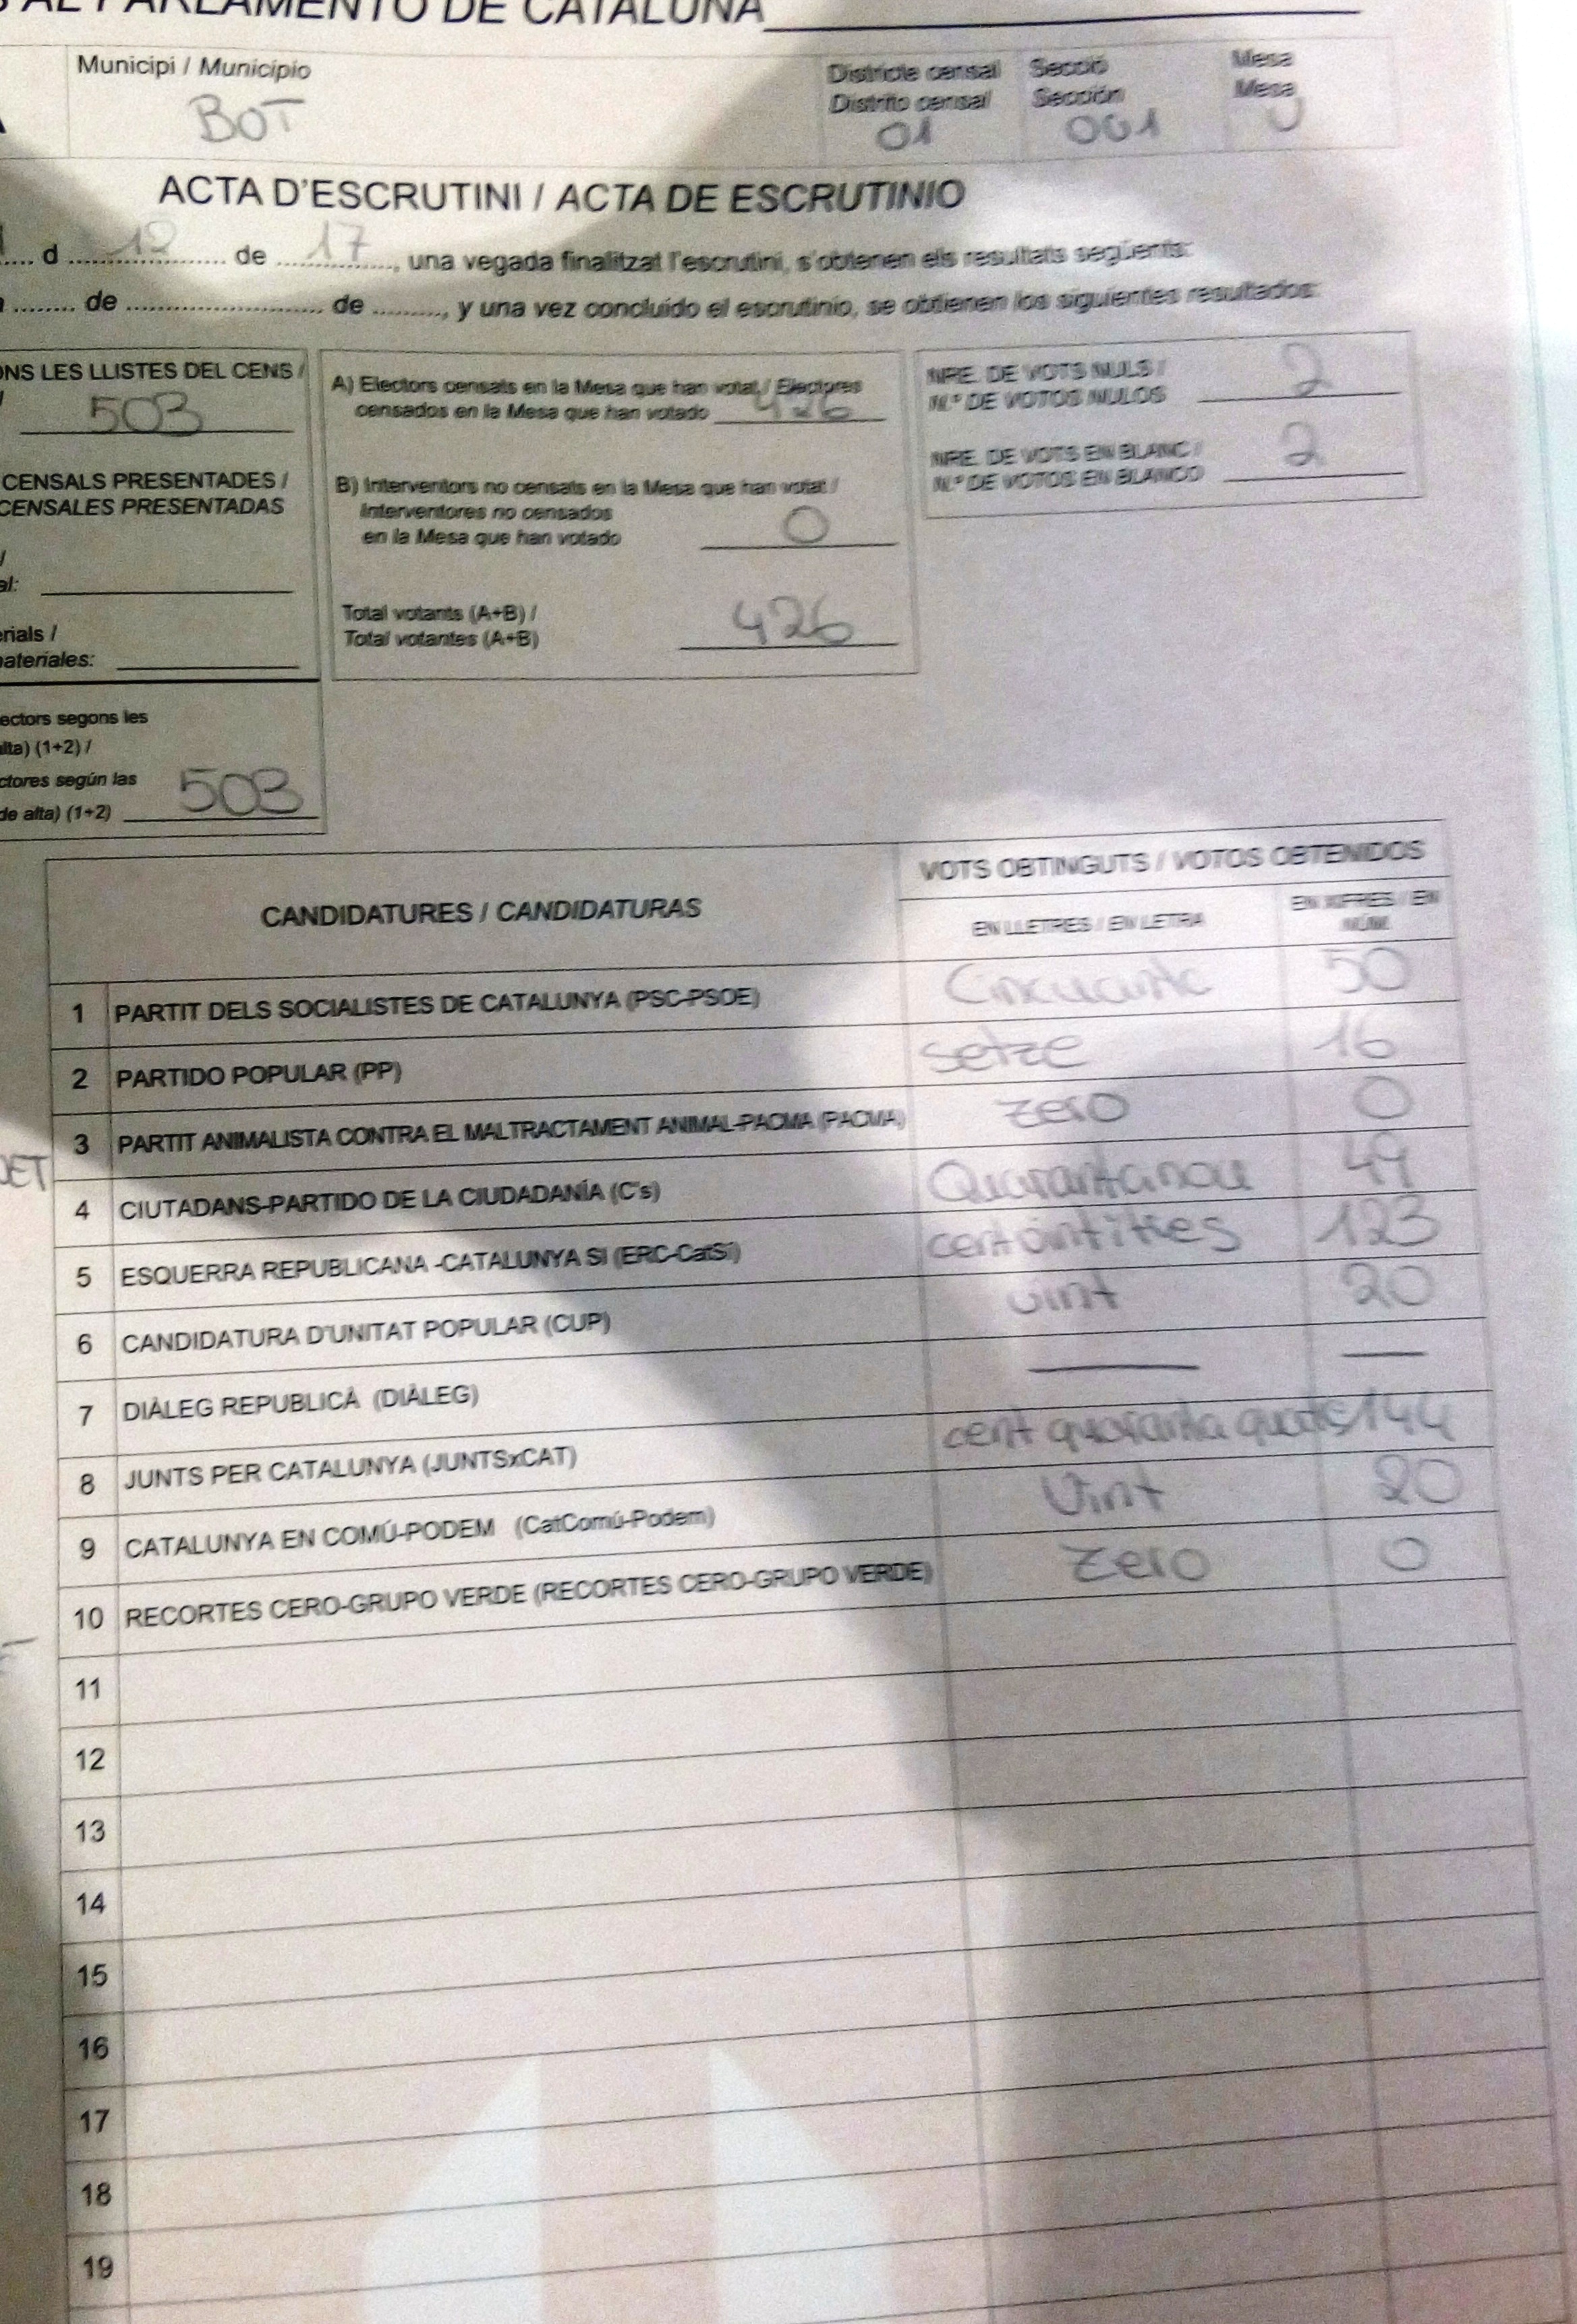 AL PARLAMENTO DE CATALUÑA
Municipi / Municipio
BOT
Districte censal
Distrito censal
01
Secció
Sección
001
Mesa
Mesa
U
ACTA D'ESCRUTINI / ACTA DE ESCRUTINIO
d 12 de 17, una vegada finalitzat l'escrutini, s'obtenen els resultats següents:
de de, y una vez concluido el escrutinio, se obtienen los siguientes resultados:
LES LLISTES DEL CENS /
503
CENSALS PRESENTADES /
CENSALES PRESENTADAS
segons les
(1+2) /
según las
de alta) (1+2) 503
A) Electors censats en la Mesa que han votat / Electores
censados en la Mesa que han votado 426
B) Interventors no censats en la Mesa que han votat /
Interventores no censados
en la Mesa que han votado 0
Total votants (A+B) /
Total votantes (A+B) 426
NRE. DE VOTS NULS /
N.º DE VOTOS NULOS 2
NRE. DE VOTS EN BLANC /
N.º DE VOTOS EN BLANCO 2
CANDIDATURES / CANDIDATURAS
VOTS OBTINGUTS / VOTOS OBTENIDOS
EN LLETRES / EN LETRA
EN XIFRES / EN
NÚM.
1 PARTIT DELS SOCIALISTES DE CATALUNYA (PSC-PSOE) Cincuanta 50
2 PARTIDO POPULAR (PP) setze 16
3 PARTIT ANIMALISTA CONTRA EL MALTRACTAMENT ANIMAL-PACMA (PACMA) zero 0
4 CIUTADANS-PARTIDO DE LA CIUDADANÍA (C's) Quarantanou 49
5 ESQUERRA REPUBLICANA -CATALUNYA SI (ERC-CatSí) 123
6 CANDIDATURA D'UNITAT POPULAR (CUP) vint 20
7 DIÀLEG REPUBLICÀ (DIÀLEG) — —
8 JUNTS PER CATALUNYA (JUNTSxCAT) cent quaranta quatre 144
9 CATALUNYA EN COMÚ-PODEM (CatComú-Podem) Vint 20
10 RECORTES CERO-GRUPO VERDE (RECORTES CERO-GRUPO VERDE) zero 0
11
12
13
14
15
16
17
18
19